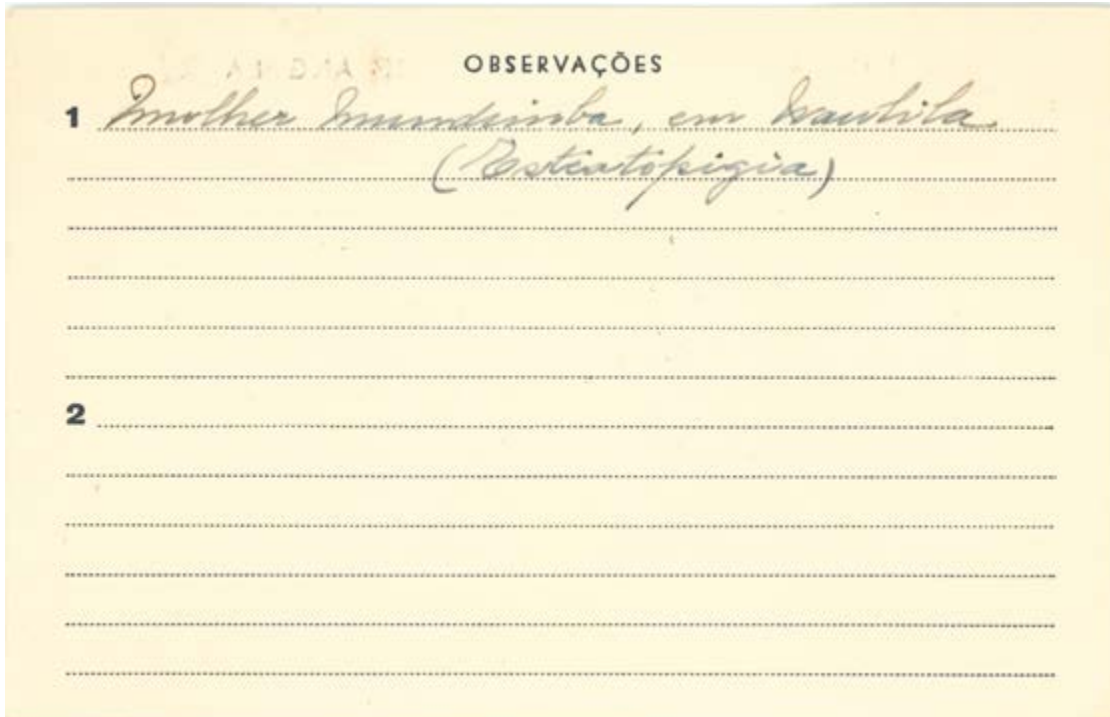 OBSERVAÇÕES
1 Mulher mundimba, em Naulila.
(Esteatopigia)
2